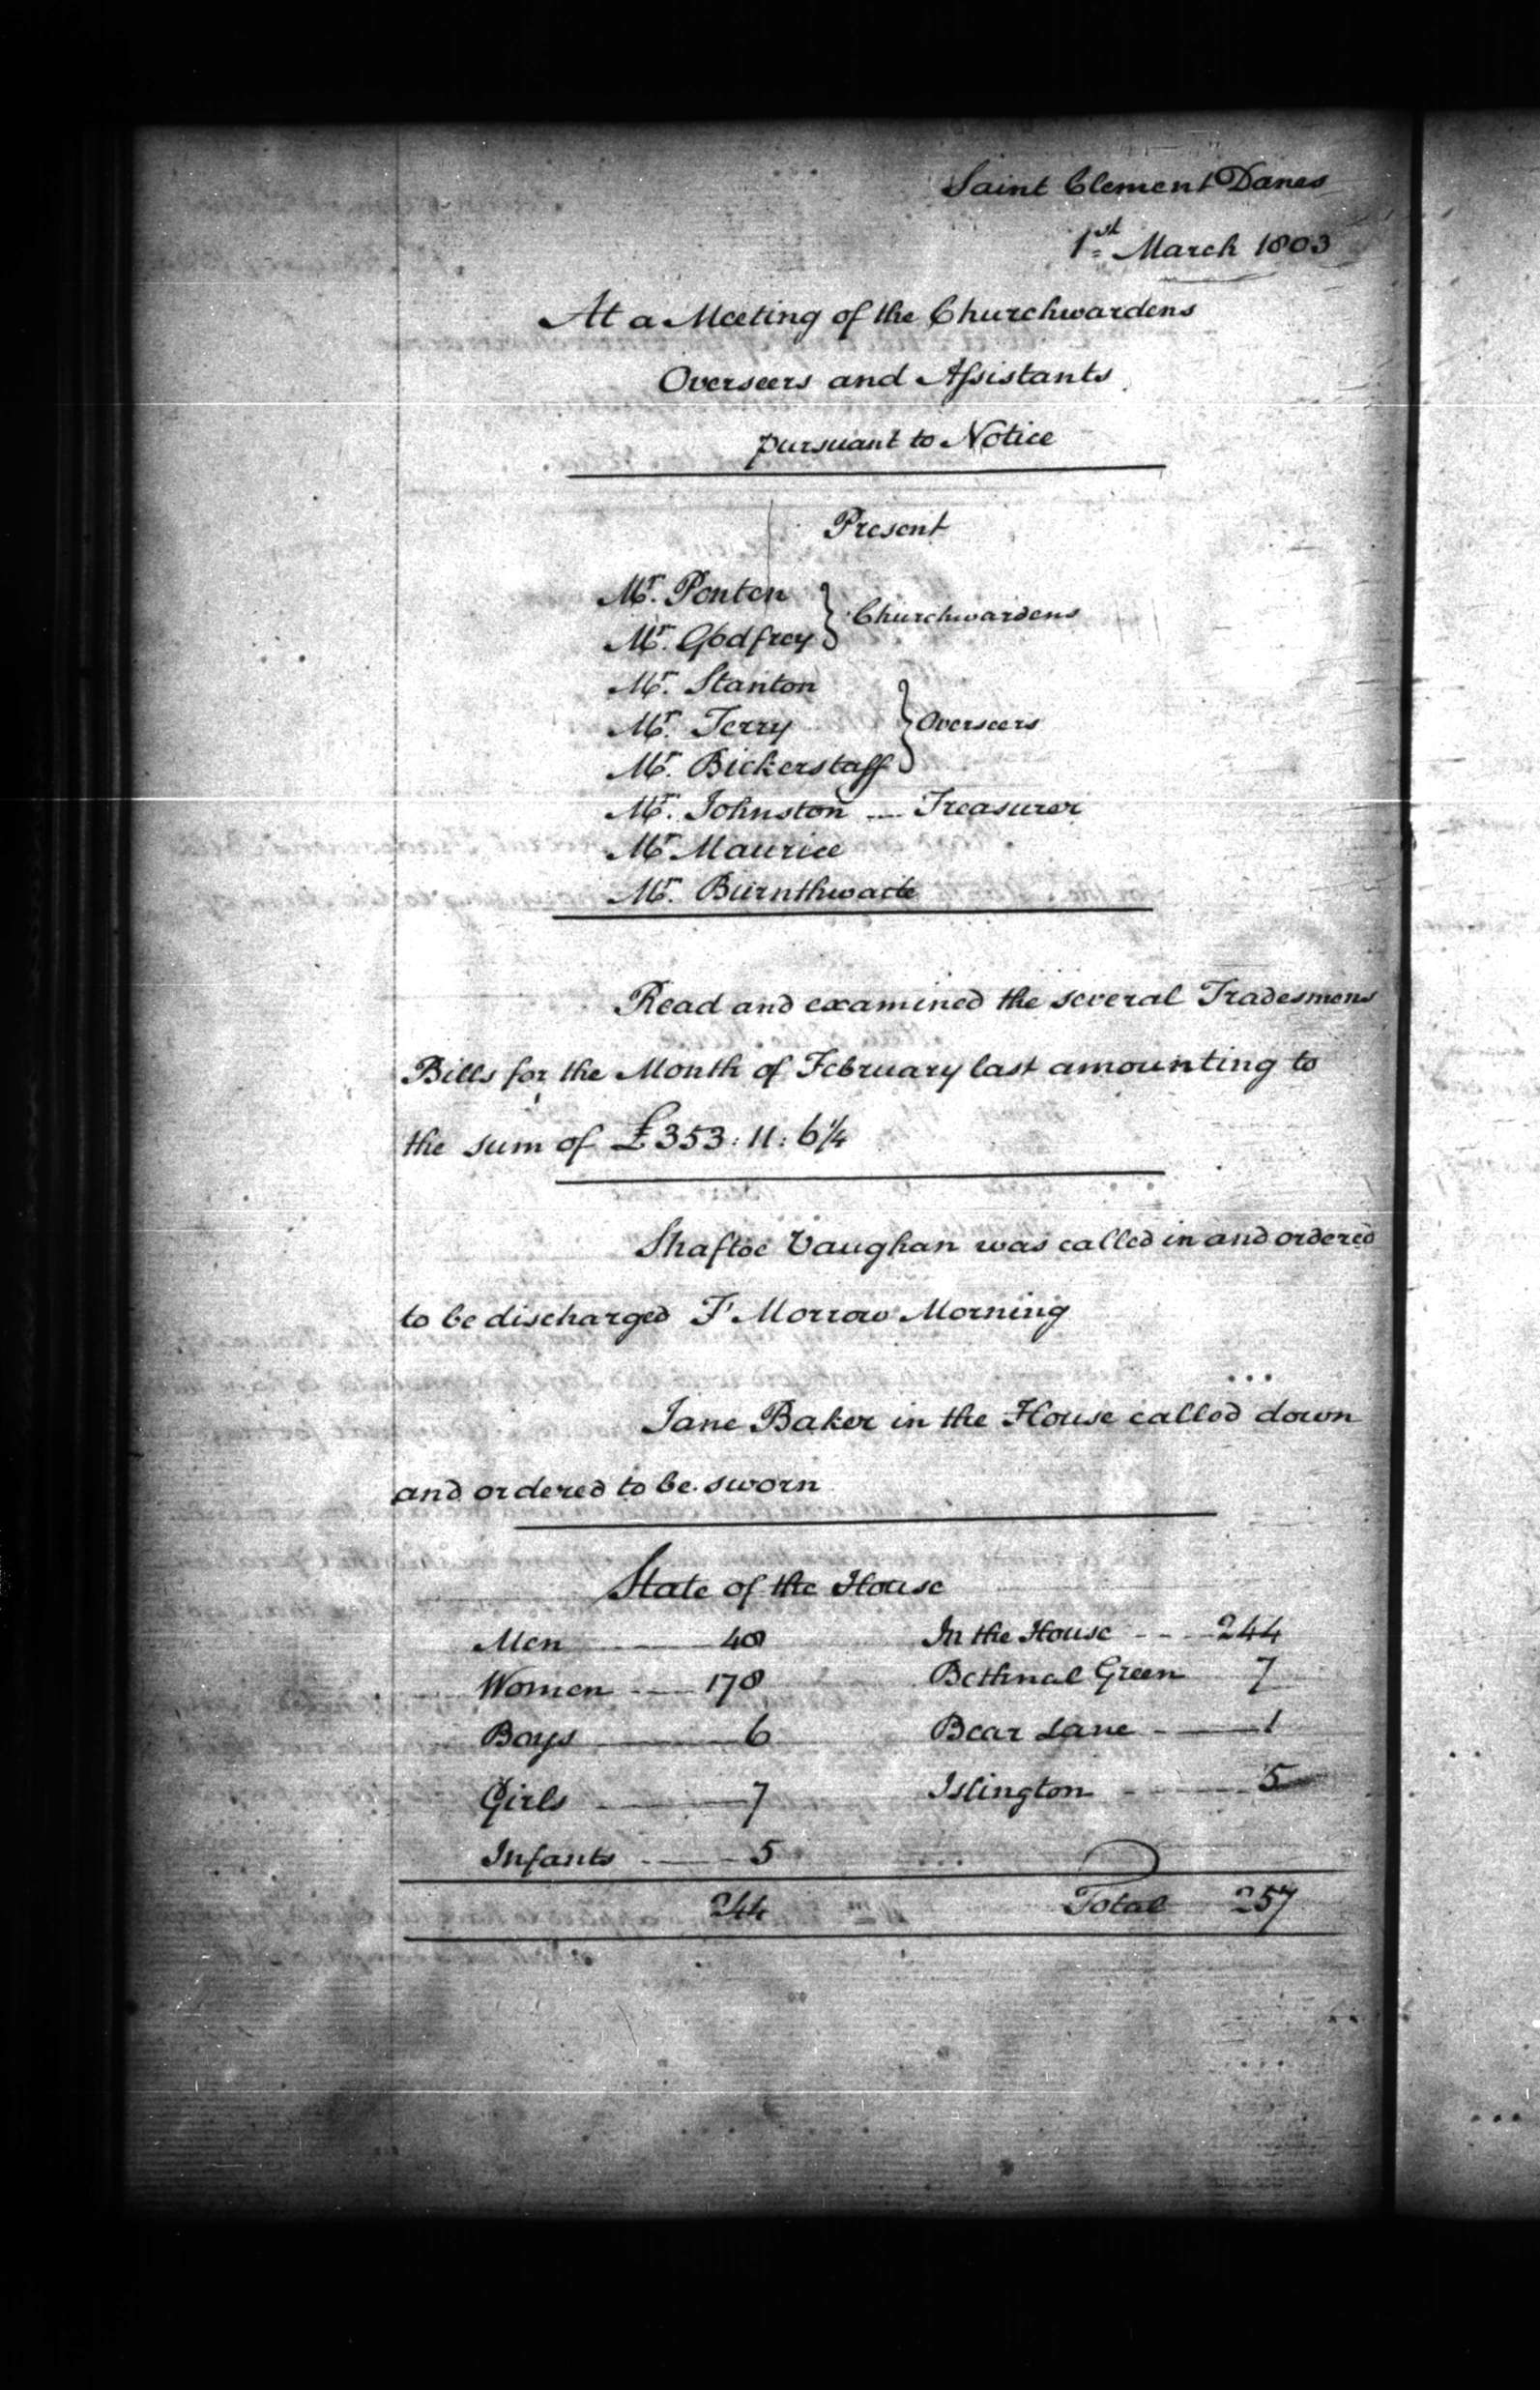 Saint Clement Danes
1st March 1803
At a Meeting of the Churchwardens
Overseers and Assistants
pursuant to Notice
Present
Mr. Ponten
Mr. Godfrey } Churchwardens
Mr. Stanton
Mr. Terry } Overseers
Mr. Bickerstaff
Mr. Johnston — Treasurer
Mr Maurice
Mr. Burnthwaite
Read and examined the several Tradesmens
Bills for the Month of February last amounting to
the sum of £353:11:6¼
Shaftoe Vaughan was called in and ordered
to be discharged T'Morrow Morning
Jane Baker in the House called down
and ordered to be sworn
State of the House
Men — 48 In the House — 244
Women — 178 Bethnal Green 7
Boys — 6 Bear Lane — 1
Girls — 7 Islington — 5
Infants — 5
244 Total 257